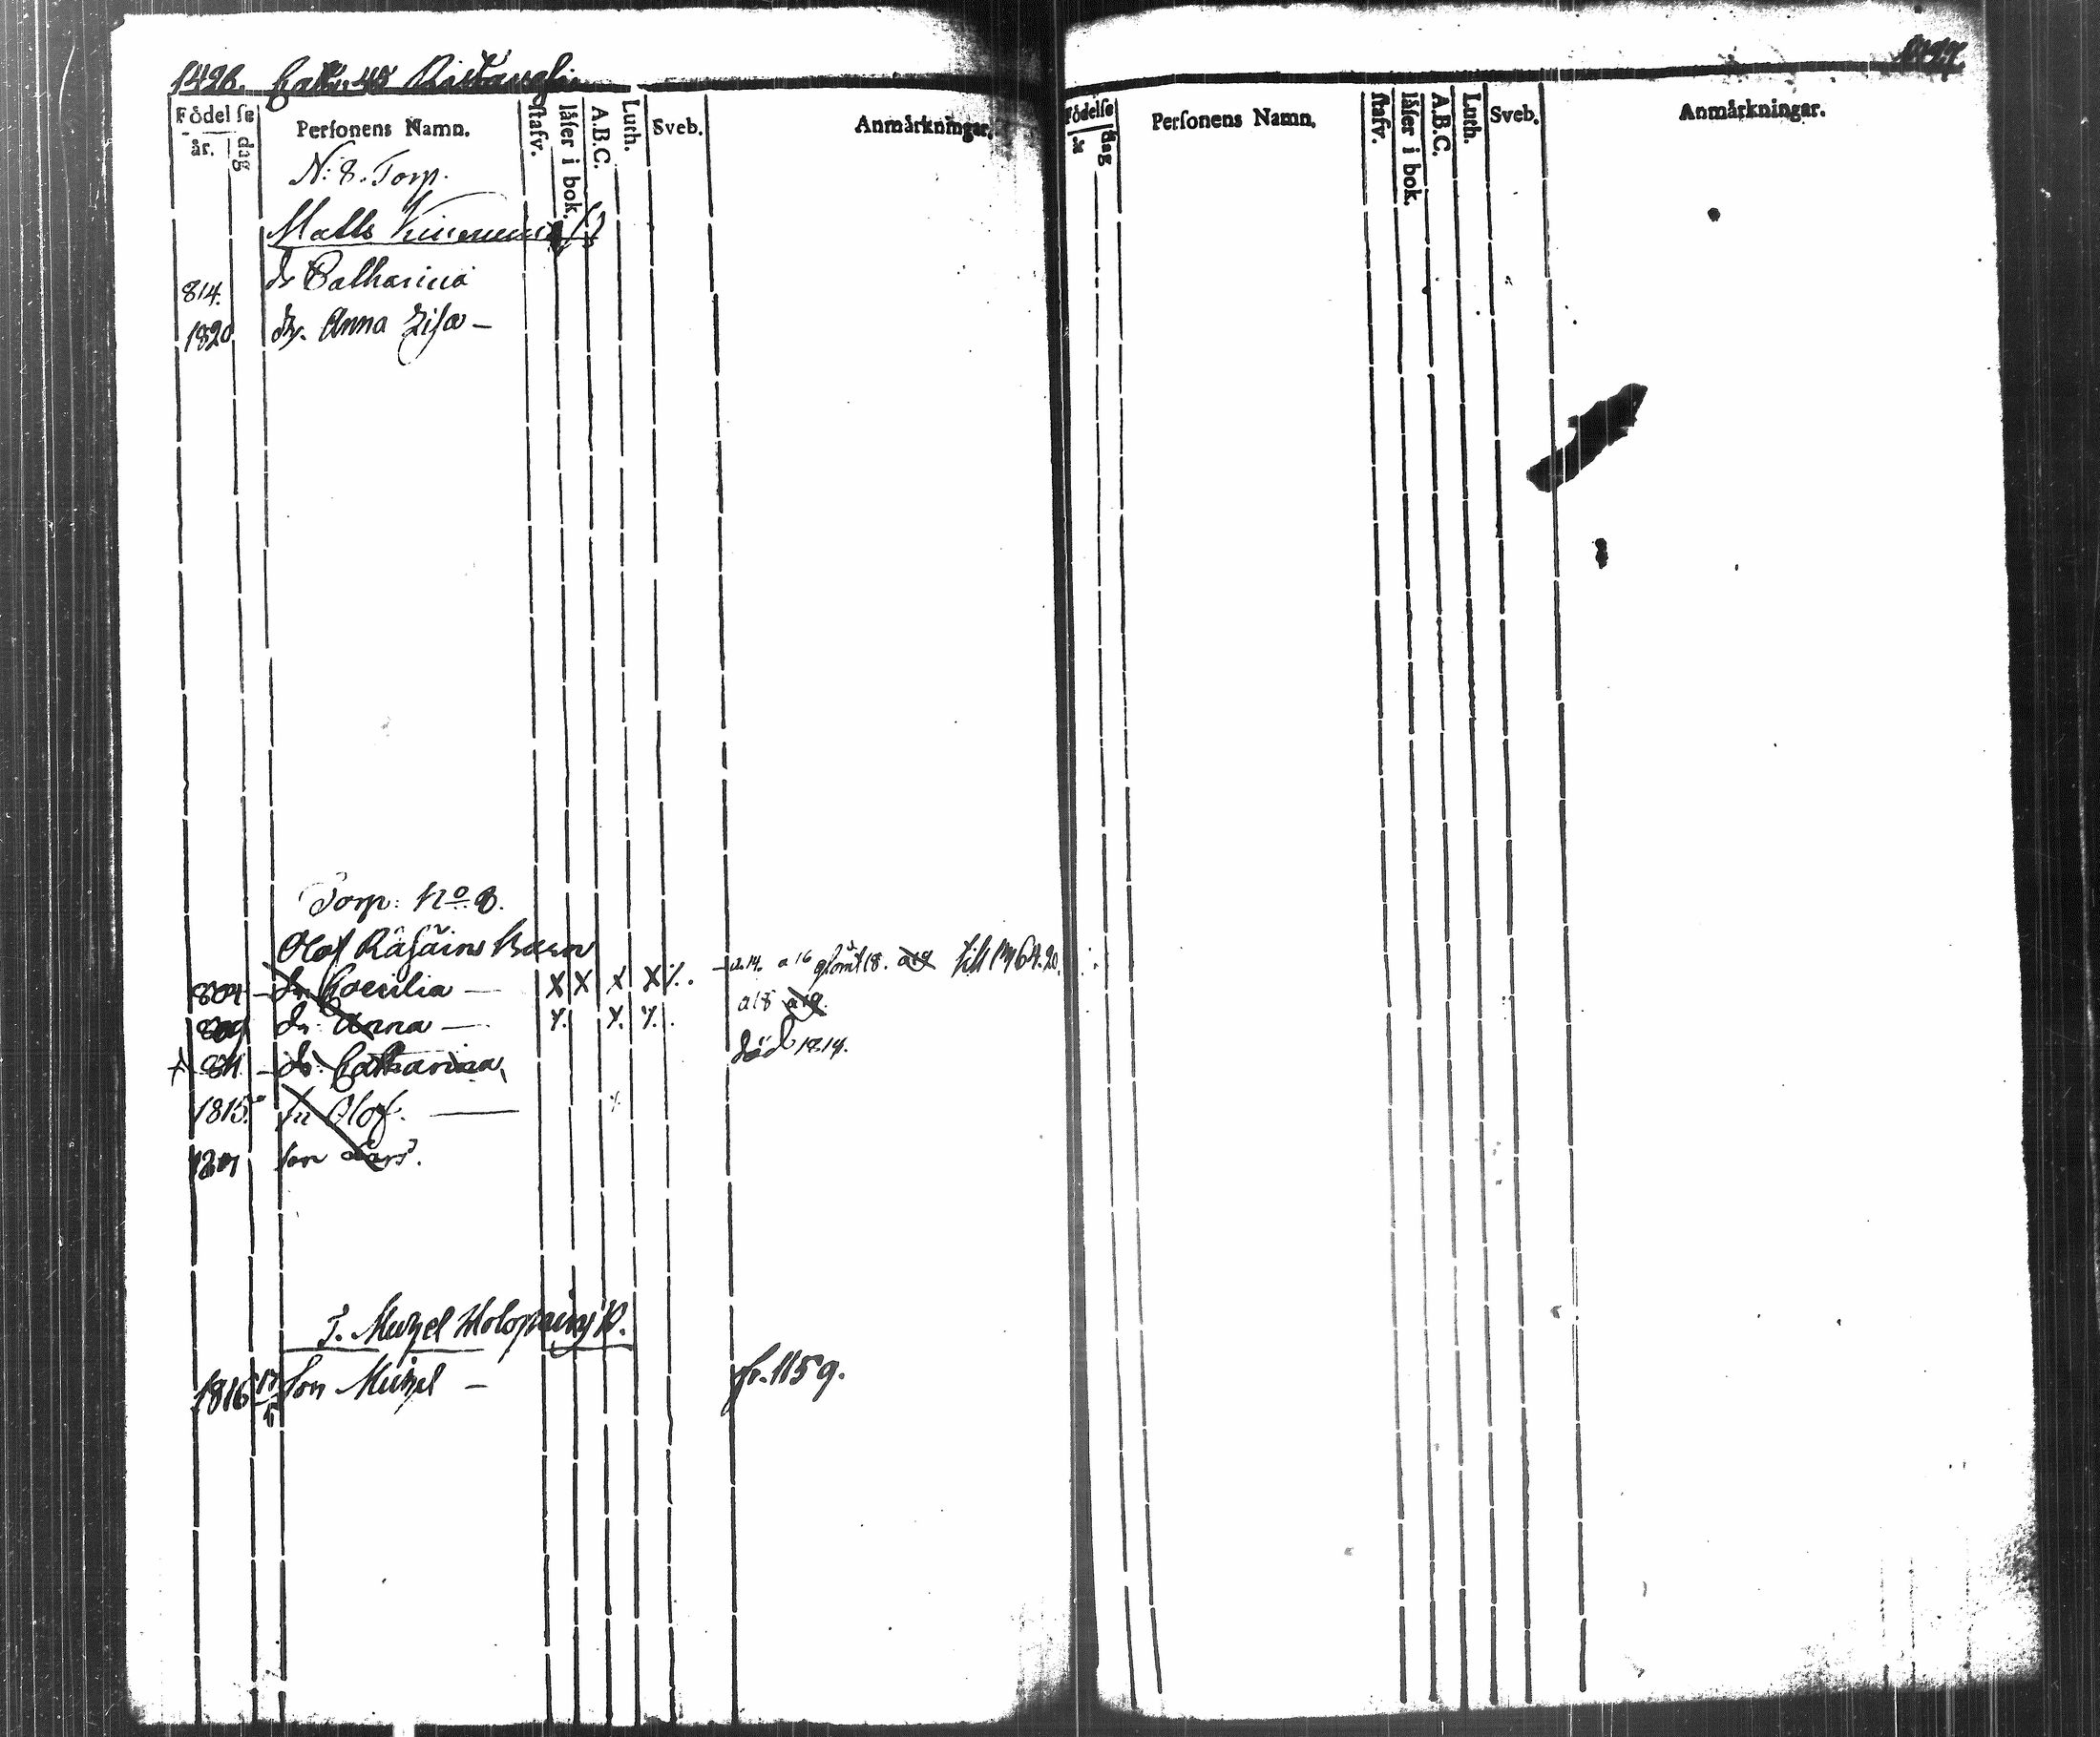 1426.
Födelse
år. dag
Personens Namn.
stafv.
läser i bok.
A.B.C.
Luth.
Sveb.
Anmärkningar.
N: 8. Torp.
Matts
814. dr Catharina
1820 dr. Anna Lisa —
Torp: No 8.
Olof Räsäins Barn
804 — dr. Coecilia — X X X X %. a 14. a 16 glömt 18. a19 till 20
809 dr. Anna — a18 a19.
+ 811 — dr. Catharina död 1814.
1815. sn Olof. —
son Lars.
T. Michel Holopains B.
1816 son Michel — fr. 1159.
1427.
Födelse
år. dag
Personens Namn.
stafv.
läser i bok.
A.B.C.
Luth.
Sveb.
Anmärkningar.